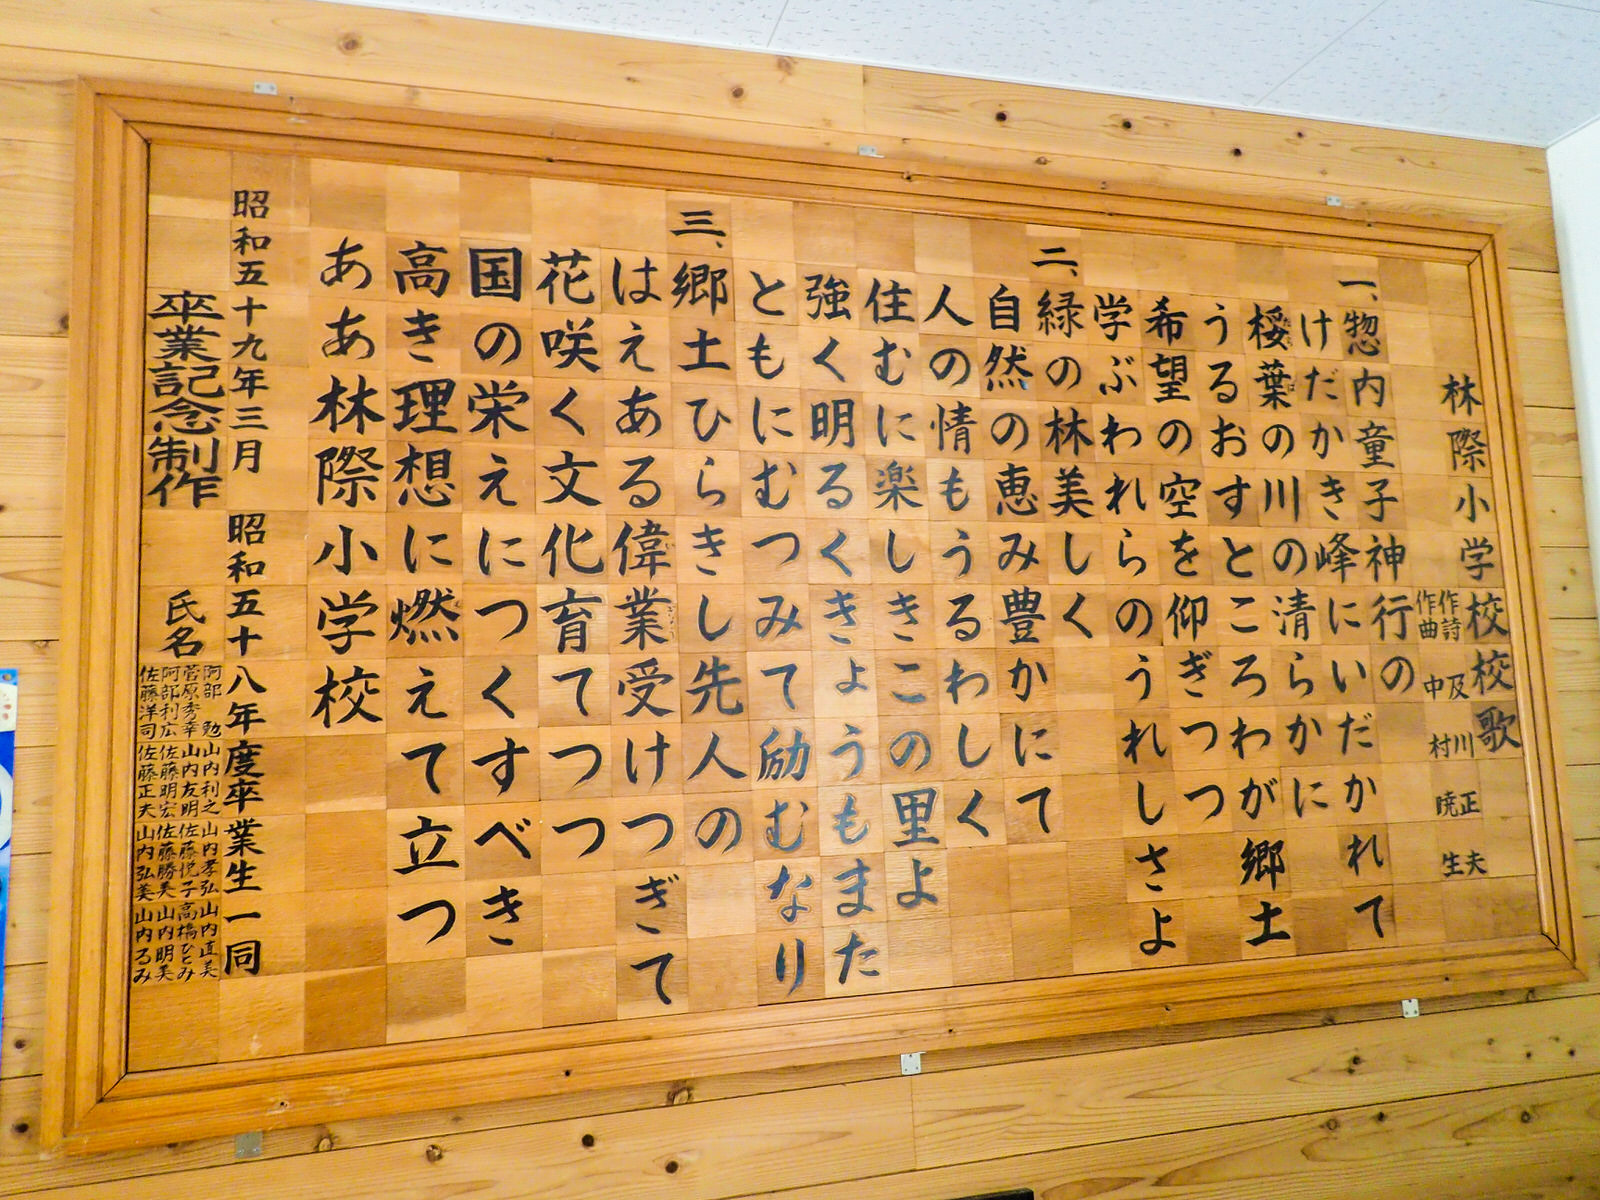 林際小学校校歌
作詩　及川正夫
作曲　中村暁生
一、惣内童子神行の
けだかき峰にいだかれて
桵葉の川の清らかに
うるおすところわが郷土
希望の空を仰ぎつつ
学ぶわれらのうれしさよ
二、緑の林美しく
自然の恵み豊かにて
人の情もうるわしく
住むに楽しきこの里よ
強く明るくきょうもまた
ともにむつみて励むなり
三、郷土ひらきし先人の
はえある偉業受けつぎて
花咲く文化育てつつ
国の栄えにつくすべき
高き理想に燃えて立つ
ああ林際小学校
昭和五十九年三月　昭和五十八年度卒業生一同
卒業記念制作　氏名
阿部　勉　山内利之　山内孝弘　山内直美
菅原秀幸　山内友明　佐藤悦子　高橋ひとみ
阿部利広　佐藤明宏　佐藤勝美　山内明美
佐藤洋司　佐藤正夫　山内弘美　山内るみ